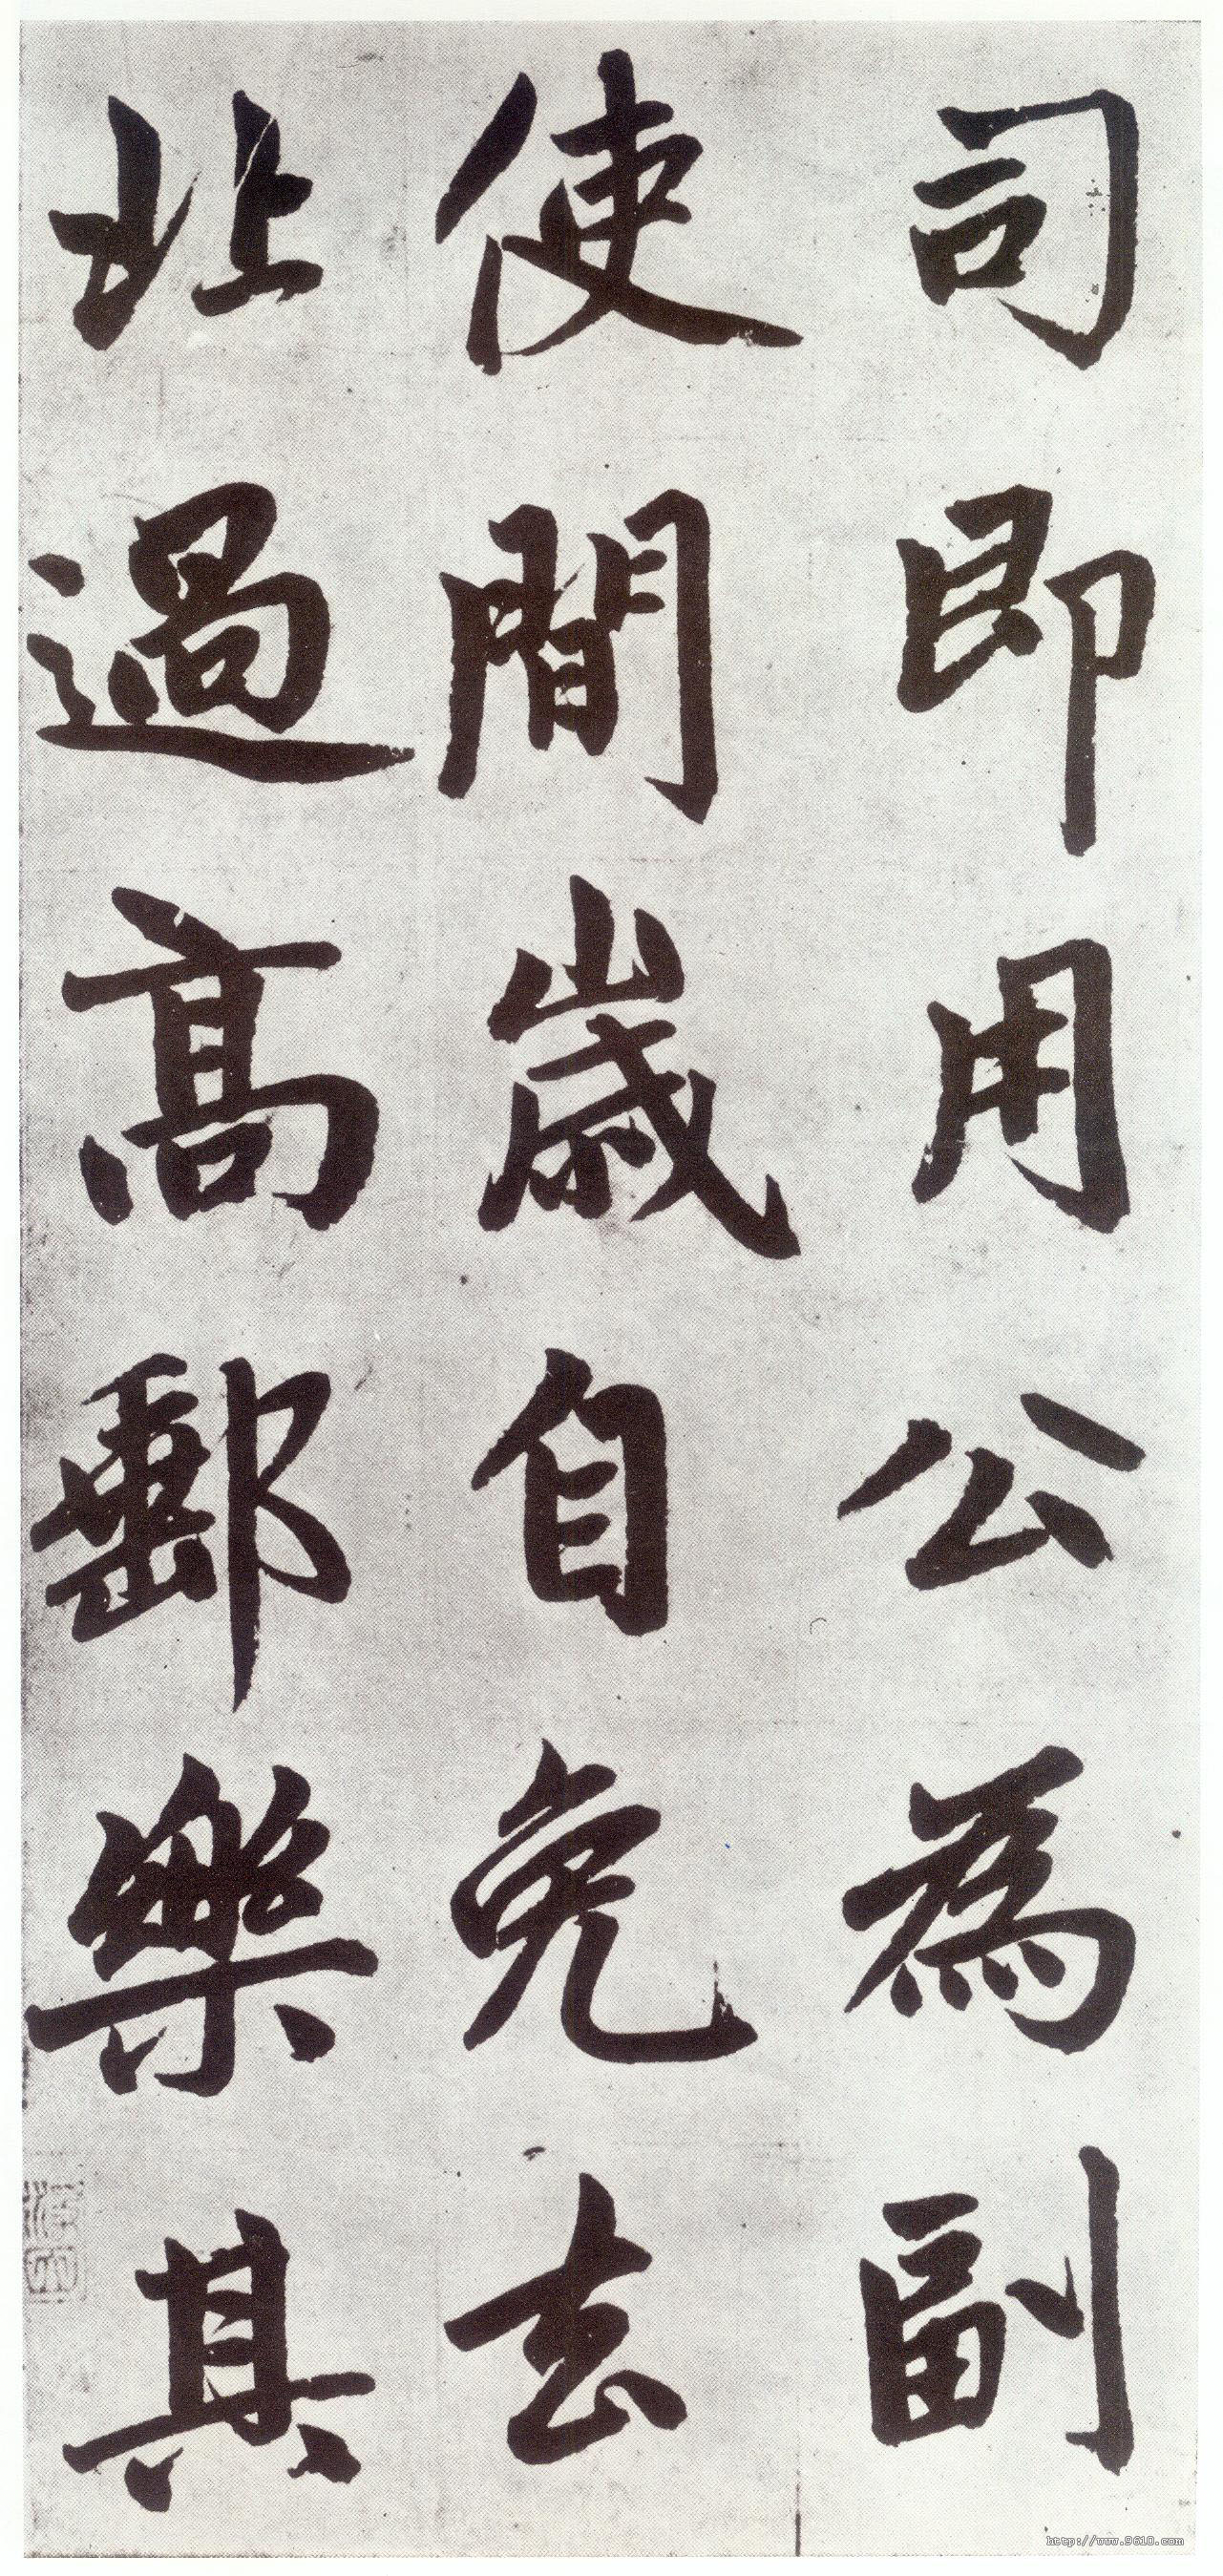 司即用公為副
使間歲自免去
北過高郵樂其
http://www.9610.com